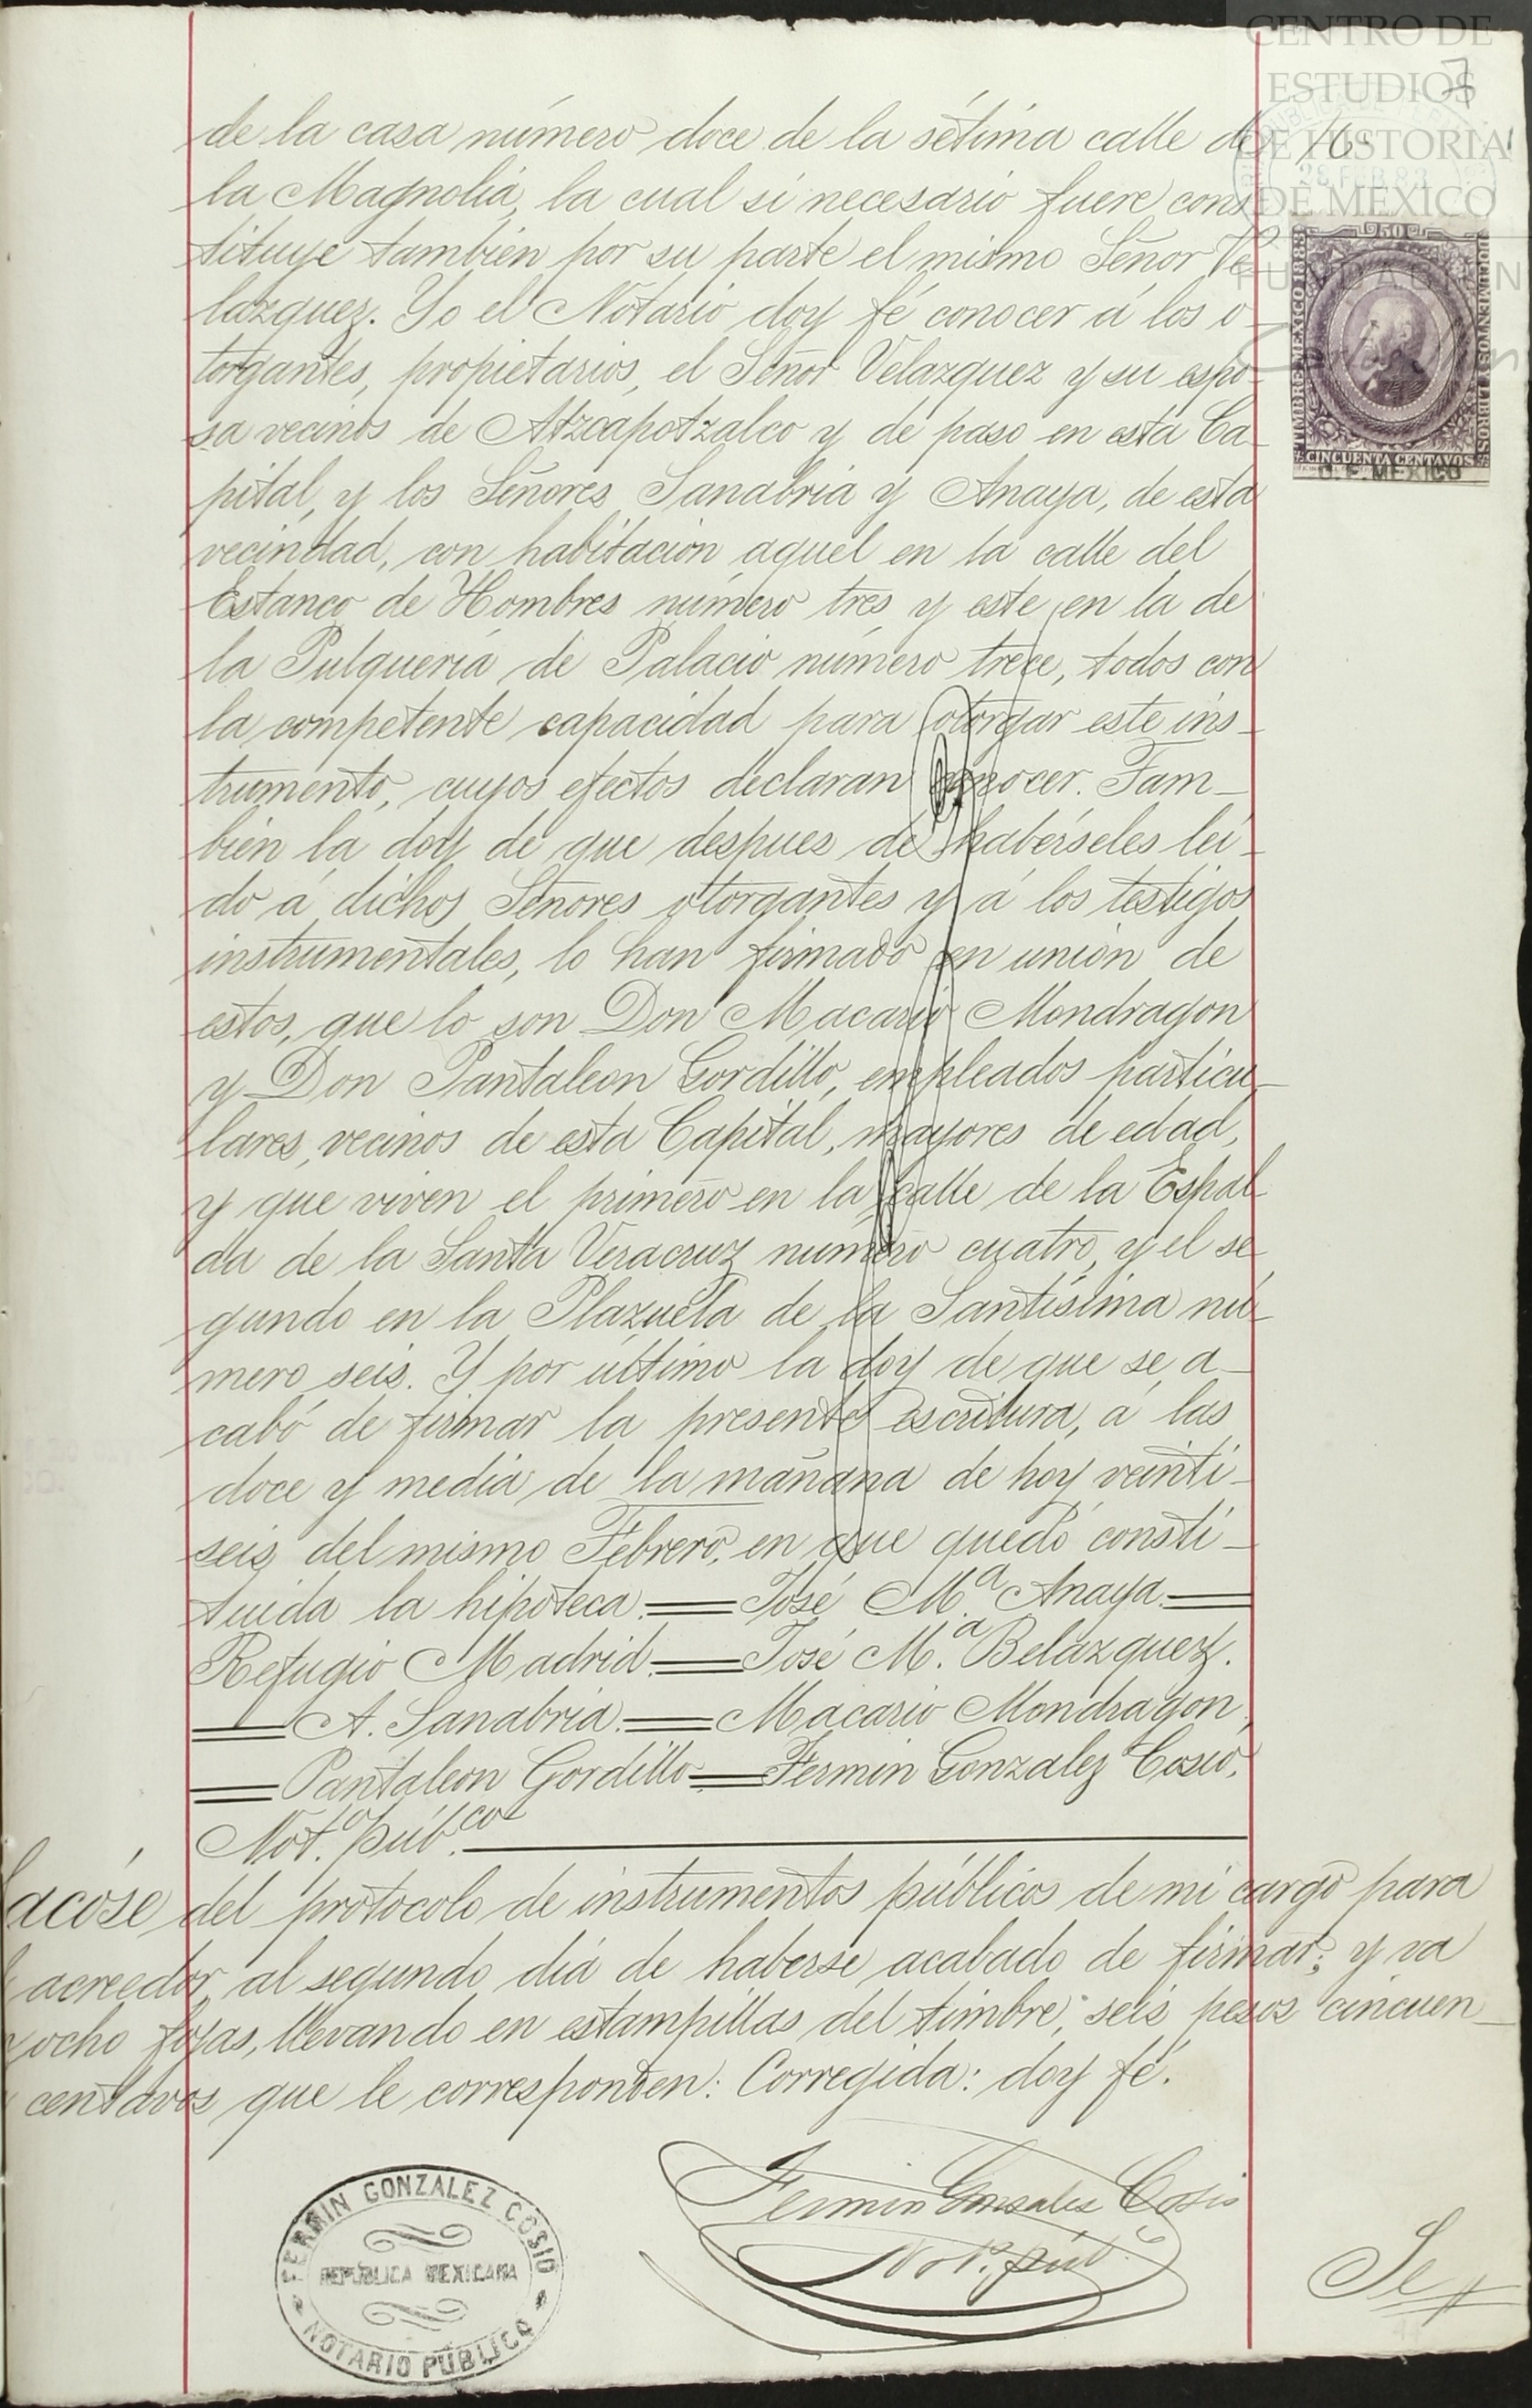 CENTRO DE
ESTUDIOS
DE HISTORIA
DE MEXICO
FUNDACION
7
de la casa número doce de la sétima calle de
la Magnolia, la cual si necesario fuere cons
tituye también por su parte el mismo Señor Ve
lazquez. Yo el Notario doy fé conocer á los o-
torgantes, propietarios, el Señor Velazquez y su espo-
sa vecinos de Atzcapotzalco y de paso en esta Ca-
pital, y los Señores Sanabria y Anaya, de esta
vecindad, con habitación aquel en la calle del
Estanco de Hombres número tres, y este en la de
la Pulquería de Palacio número trece, todos con
la competente capacidad para otorgar este ins-
trumento, cuyos efectos declaran conocer. Tam-
bien la doy de que despues de habérseles lei-
do á dichos Señores otorgantes y á los testigos
instrumentales, lo han firmado en unión de
estos, que lo son Don Macario Mondragon
y Don Pantaleon Gordillo, empleados particu-
lares, vecinos de esta Capital, mayores de edad,
y que viven el primero en la calle de la Espal-
da de la Santa Veracruz número cuatro, y el se-
gundo en la Plazuela de la Santísima nú-
mero seis. Y por último la doy de que se a-
cabó de firmar la presente escritura, á las
doce y media de la mañana de hoy veinti-
seis del mismo Febrero, en que quedó consti-
tuida la hipoteca.=José M.ª Anaya.=
Refugio Madrid.=José M.ª Belazquez.
=A. Sanabria.=Macario Mondragon,
=Pantaleon Gordillo.=Fermin Gonzalez Cosio.
Not.º púb.co
acóse del protocolo de instrumentos públicos de mi cargo para
acreedor, al segundo dia de haberse acabado de firmar; y va
ocho fojas, llevando en estampillas del timbre, seis pesos cincuen-
centavos que le corresponden: Corregida: doy fé.
Fermin Gonzalez Cosio
Not. púb.
FERMIN GONZALEZ COSIO
REPÚBLICA MEXICANA
NOTARIO PÚBLICO
50
TIMBRE MEXICO 1883
DOCUMENTOS Y LIBROS
CINCUENTA CENTAVOS
D. F. MEXICO